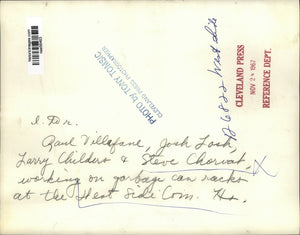 PHOTO BY TONY TOMSIC
CLEVELAND PRESS PHOTOGRAPHER
CLEVELAND PRESS
NOV 24 1967
REFERENCE DEPT.
l. to r.
Raul Villafane, Josh Losh,
Larry Childers & Steve Chorvat,
working on garbage can racks
at the West Side Com. Hs.